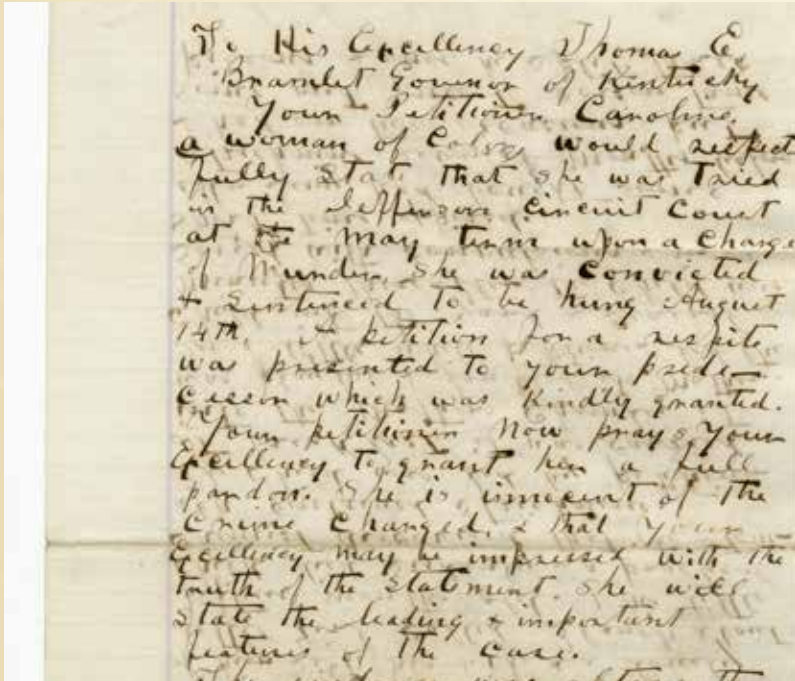 To His Excellency Thomas E.
Bramlet Govenor of Kentucky
Your Petitioner Caroline,
a woman of Color, would respect
fully State that she was Tried
in the Jefferson circuit Court
at the May term upon a Charge
of Murder, She was convicted
+ Sentenced to be hung August
14th. A petition for a respite
was presented to your prede–
cessor which was Kindly granted.
Your petitioner now prays Your
Excellency to grant her a full
pardon. She is innocent of the
Crime Charged, & that Your
Excellency may be impressed with the
truth of the statement. She will
State the leading + important
features of the case.